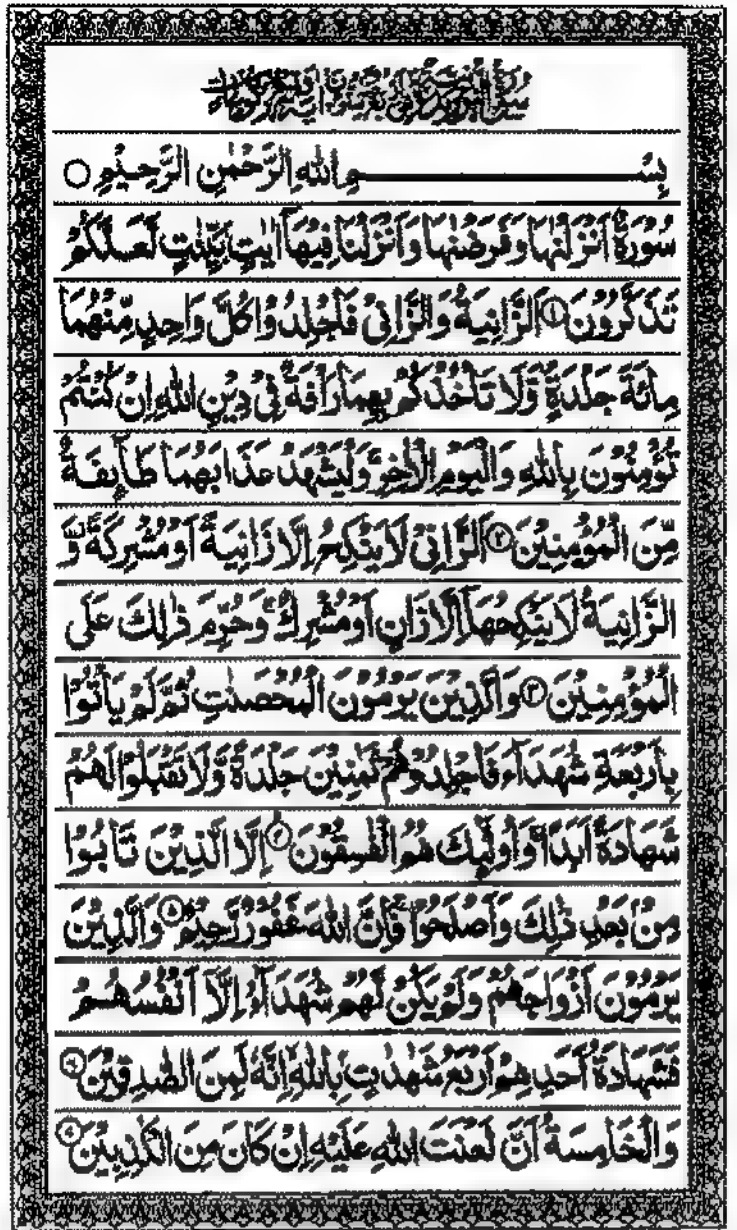 بِسْــــــــــمِ اللهِ الرَّحْمٰنِ الرَّحِيْمِ ○
سُوْرَةٌ اَنْزَلْنٰهَا وَفَرَضْنٰهَا وَاَنْزَلْنَا فِيْهَاۤ اٰيٰتٍۭ بَيِّنٰتٍ لَّعَلَّكُمْ
تَذَكَّرُوْنَ ۝۱ اَلزَّانِيَةُ وَالزَّانِيْ فَاجْلِدُوْا كُلَّ وَاحِدٍ مِّنْهُمَا
مِائَةَ جَلْدَةٍ وَّلَا تَاْخُذْكُمْ بِهِمَا رَاْفَةٌ فِيْ دِيْنِ اللهِ اِنْ كُنْتُمْ
تُؤْمِنُوْنَ بِاللهِ وَالْيَوْمِ الْاٰخِرِ ۚ وَلْيَشْهَدْ عَذَابَهُمَا طَآئِفَةٌ
مِّنَ الْمُؤْمِنِيْنَ ۝۲ اَلزَّانِيْ لَا يَنْكِحُ اِلَّا زَانِيَةً اَوْ مُشْرِكَةً ۫ وَّ
الزَّانِيَةُ لَا يَنْكِحُهَاۤ اِلَّا زَانٍ اَوْ مُشْرِكٌ ۚ وَحُرِّمَ ذٰلِكَ عَلَى
الْمُؤْمِنِيْنَ ۝۳ وَالَّذِيْنَ يَرْمُوْنَ الْمُحْصَنٰتِ ثُمَّ لَمْ يَاْتُوْا
بِاَرْبَعَةِ شُهَدَآءَ فَاجْلِدُوْهُمْ ثَمٰنِيْنَ جَلْدَةً وَّلَا تَقْبَلُوْا لَهُمْ
شَهَادَةً اَبَدًا ۚ وَاُولٰٓئِكَ هُمُ الْفٰسِقُوْنَ ۝۴ اِلَّا الَّذِيْنَ تَابُوْا
مِنْۢ بَعْدِ ذٰلِكَ وَاَصْلَحُوْا ۚ فَاِنَّ اللهَ غَفُوْرٌ رَّحِيْمٌ ۝۵ وَالَّذِيْنَ
يَرْمُوْنَ اَزْوَاجَهُمْ وَلَمْ يَكُنْ لَّهُمْ شُهَدَآءُ اِلَّاۤ اَنْفُسُهُمْ
فَشَهَادَةُ اَحَدِهِمْ اَرْبَعُ شَهٰدٰتٍۭ بِاللهِ ۙ اِنَّهٗ لَمِنَ الصّٰدِقِيْنَ ۝۶
وَالْخَامِسَةُ اَنَّ لَعْنَتَ اللهِ عَلَيْهِ اِنْ كَانَ مِنَ الْكٰذِبِيْنَ ۝۷